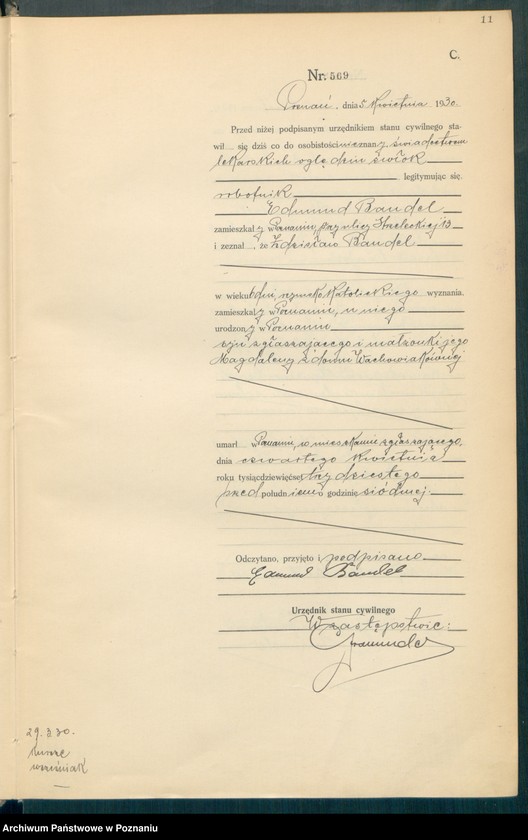 11
C.
Nr. 569
Poznań, dnia 5 Kwietnia 1930.
Przed niżej podpisanym urzędnikiem stanu cywilnego sta-
wił się dziś co do osobistości nieznany świadectwem
lekarskich oględzin zwłok
legitymując się
robotnik
Edmund Bandel
zamieszkały w Poznaniu, przy ulicy Strzeleckiej 13
i zeznał, że Zdzisław Bandel
w wieku dni, rzymsko Katolickiego wyznania.
zamieszkały w Poznaniu, u niego
urodzony w Poznaniu
syn zgłaszającego i małżonki jego
Magdaleny z domu Wachowiakównej
umarł w Poznaniu, w mieszkaniu zgłaszającego,
dnia czwartego Kwietnia
roku tysiącdziewięćset trzydziestego
przed południem o godzinie siódmej.
Odczytano, przyjęto i podpisano
Edmund Bandel
Urzędnik stanu cywilnego
W zastępstwie:
29. 3 30.
wrześniak
Archiwum Państwowe w Poznaniu